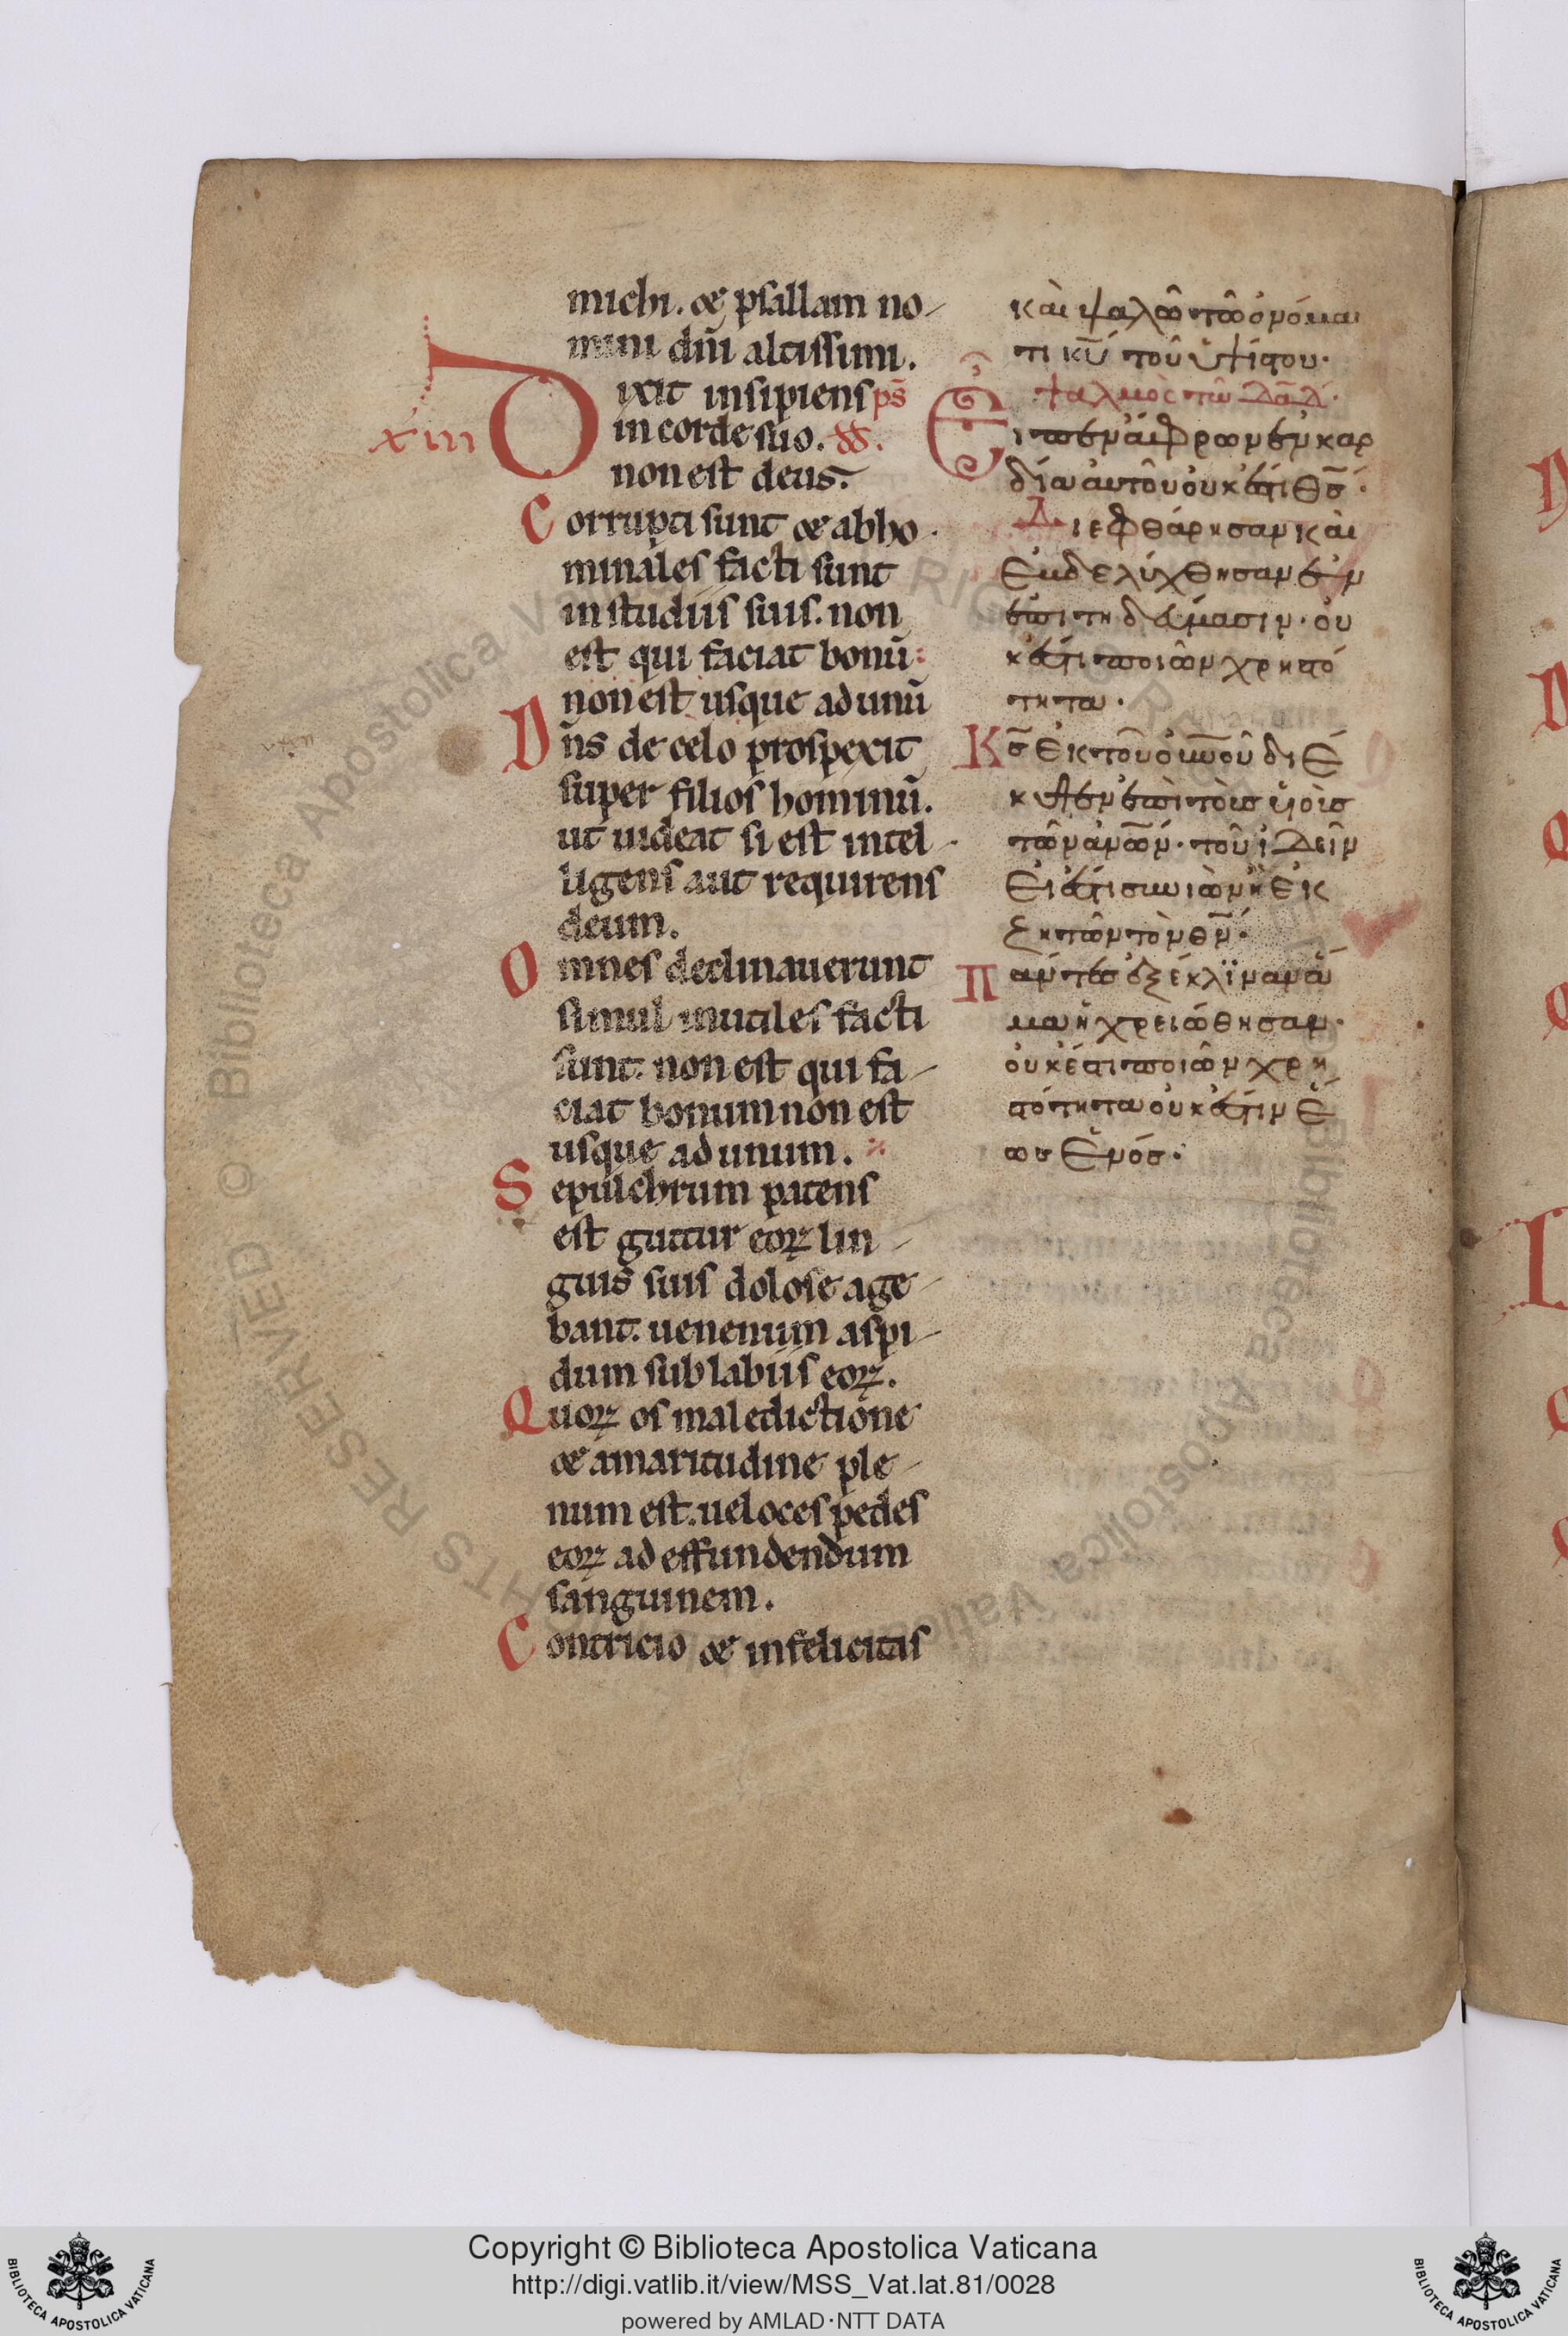 michi. & psallam no-
mini dñi altissimi.
xiii
Dixit insipiens ps̄
in corde suo. 
non est deus.
Corrupti sunt & abho-
minales facti sunt
in studiis suis. non
est qui faciat bonū
non est usque ad unū
Dñs de celo prospexit
super filios hominū.
ut uideat si est intel-
ligens aut requirens
deum.
Omnes declinauerunt
simul inutiles facti
sunt. non est qui fa-
ciat bonum non est
usque ad unum.
Sepulchrum patens
est guttur eoꝝ lin-
guis suis dolose age-
bant. uenenum aspi-
dum sub labiis eoꝝ.
Quoꝝ os maledictione
& amaritudine ple-
num est. ueloces pedes
eoꝝ ad effundendum
sanguinem.
Contricio & infelicitas
κὰι ψαλῶ τῶ ὀνόμα
τι κῡ τοῦ ὑψίστου·
ψαλμὸς τῶ δᾱδ·
Εἶπεν ἄφρων ἐν καρ
δία ἀυτοῦ οὐκ ἔστι θσ̄·
Διεφθάρησαν κὰι
ἐβδελύχθησαν ἐν
ἐπιτηδεύμασιν· ὀυ
κ ἔστι ποιῶν χρηστό
τητα·
Κσ̄ ἐκ τοῦ ὀυνοῦ διέ
κυψεν ἐπὶ τὸισ ὑιὸισ
τῶν ἀνω̄ν· τοῦ ἰδεῖν
ἐι ἔστι συνιὼν ἢ ἐκ
ζητῶν τὸν θν̄·
Πάντεσ ἐξέκλϊναν ἅ
μα ἠχρειώθησαν·
ὀυκ έστι ποιῶν χρη
στότητα ὀυκ ἔστιν ἕ
ωσ ἑνόσ·
Copyright © Biblioteca Apostolica Vaticana
http://digi.vatlib.it/view/MSS_Vat.lat.81/0028
powered by AMLAD·NTT DATA
BIBLIOTECA APOSTOLICA VATICANA
BIBLIOTECA APOSTOLICA VATICANA